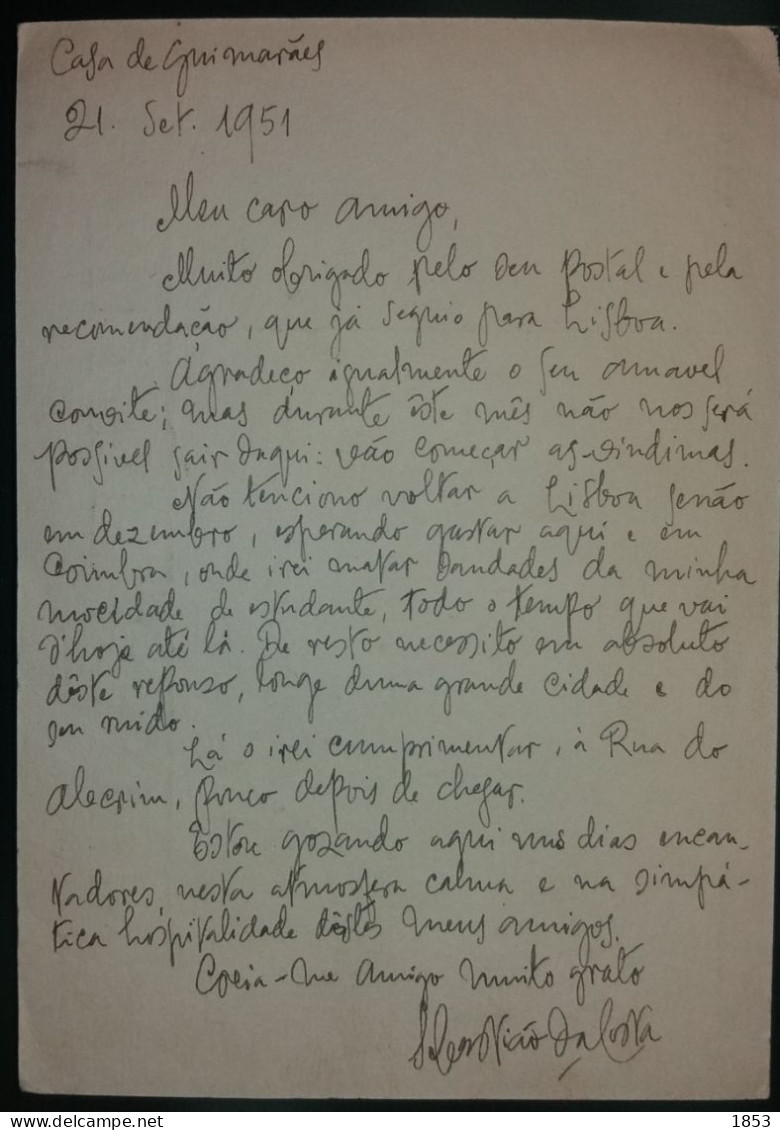 Casa de Guimarães
21. Set. 1951
Meu caro amigo,
Muito obrigado pelo seu postal e pela
recomendação, que já seguio para Lisboa.
Agradeço igualmente o seu amavel
convite; mas durante êste mês não nos será
possivel sair daqui: vão começar as vindimas.
Não tenciono voltar a Lisboa senão
em dezembro, esperando gastar aqui e em
Coimbra, onde irei matar saudades da minha
mocidade de estudante, todo o tempo que vai
d'hoje até lá. De resto necessito em absoluto
dêste repouso, longe duma grande cidade e do
seu ruido.
Lá o irei cumprimentar, à Rua do
Alecrim, pouco depois de chegar.
Estou gozando aqui uns dias encan-
tadores, nesta atmosfera calma e na simpá-
tica hospitalidade dêstes meus amigos.
Creia-me amigo muito grato
Sebastião da Costa
delcampe.net
1853